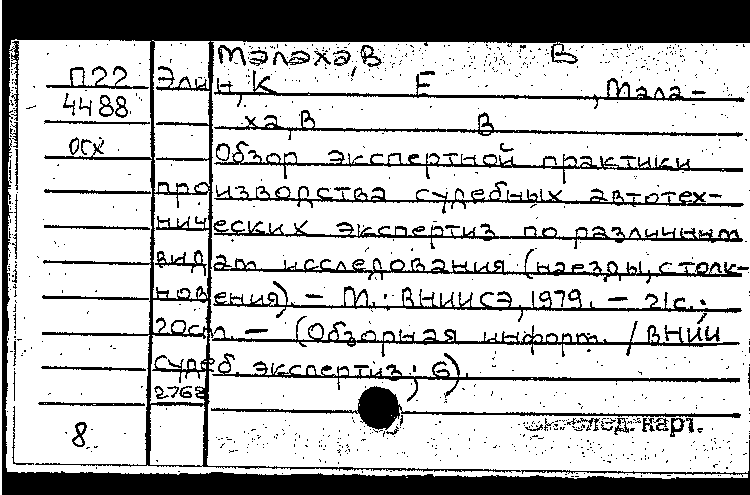 Малаха, В В
П22 Элин, К Е , Мала-
4488 ха, В В
осх Обзор экспертной практики
производства судебных автотех-
нических экспертиз по различным
видам исследования (наезды, столк-
новения). — М.: ВНИИСЭ, 1979. — 21с.;
20см. — (Обзорная информ. / ВНИИ
судеб. экспертиз; 6).
2768
См. след. карт.
8